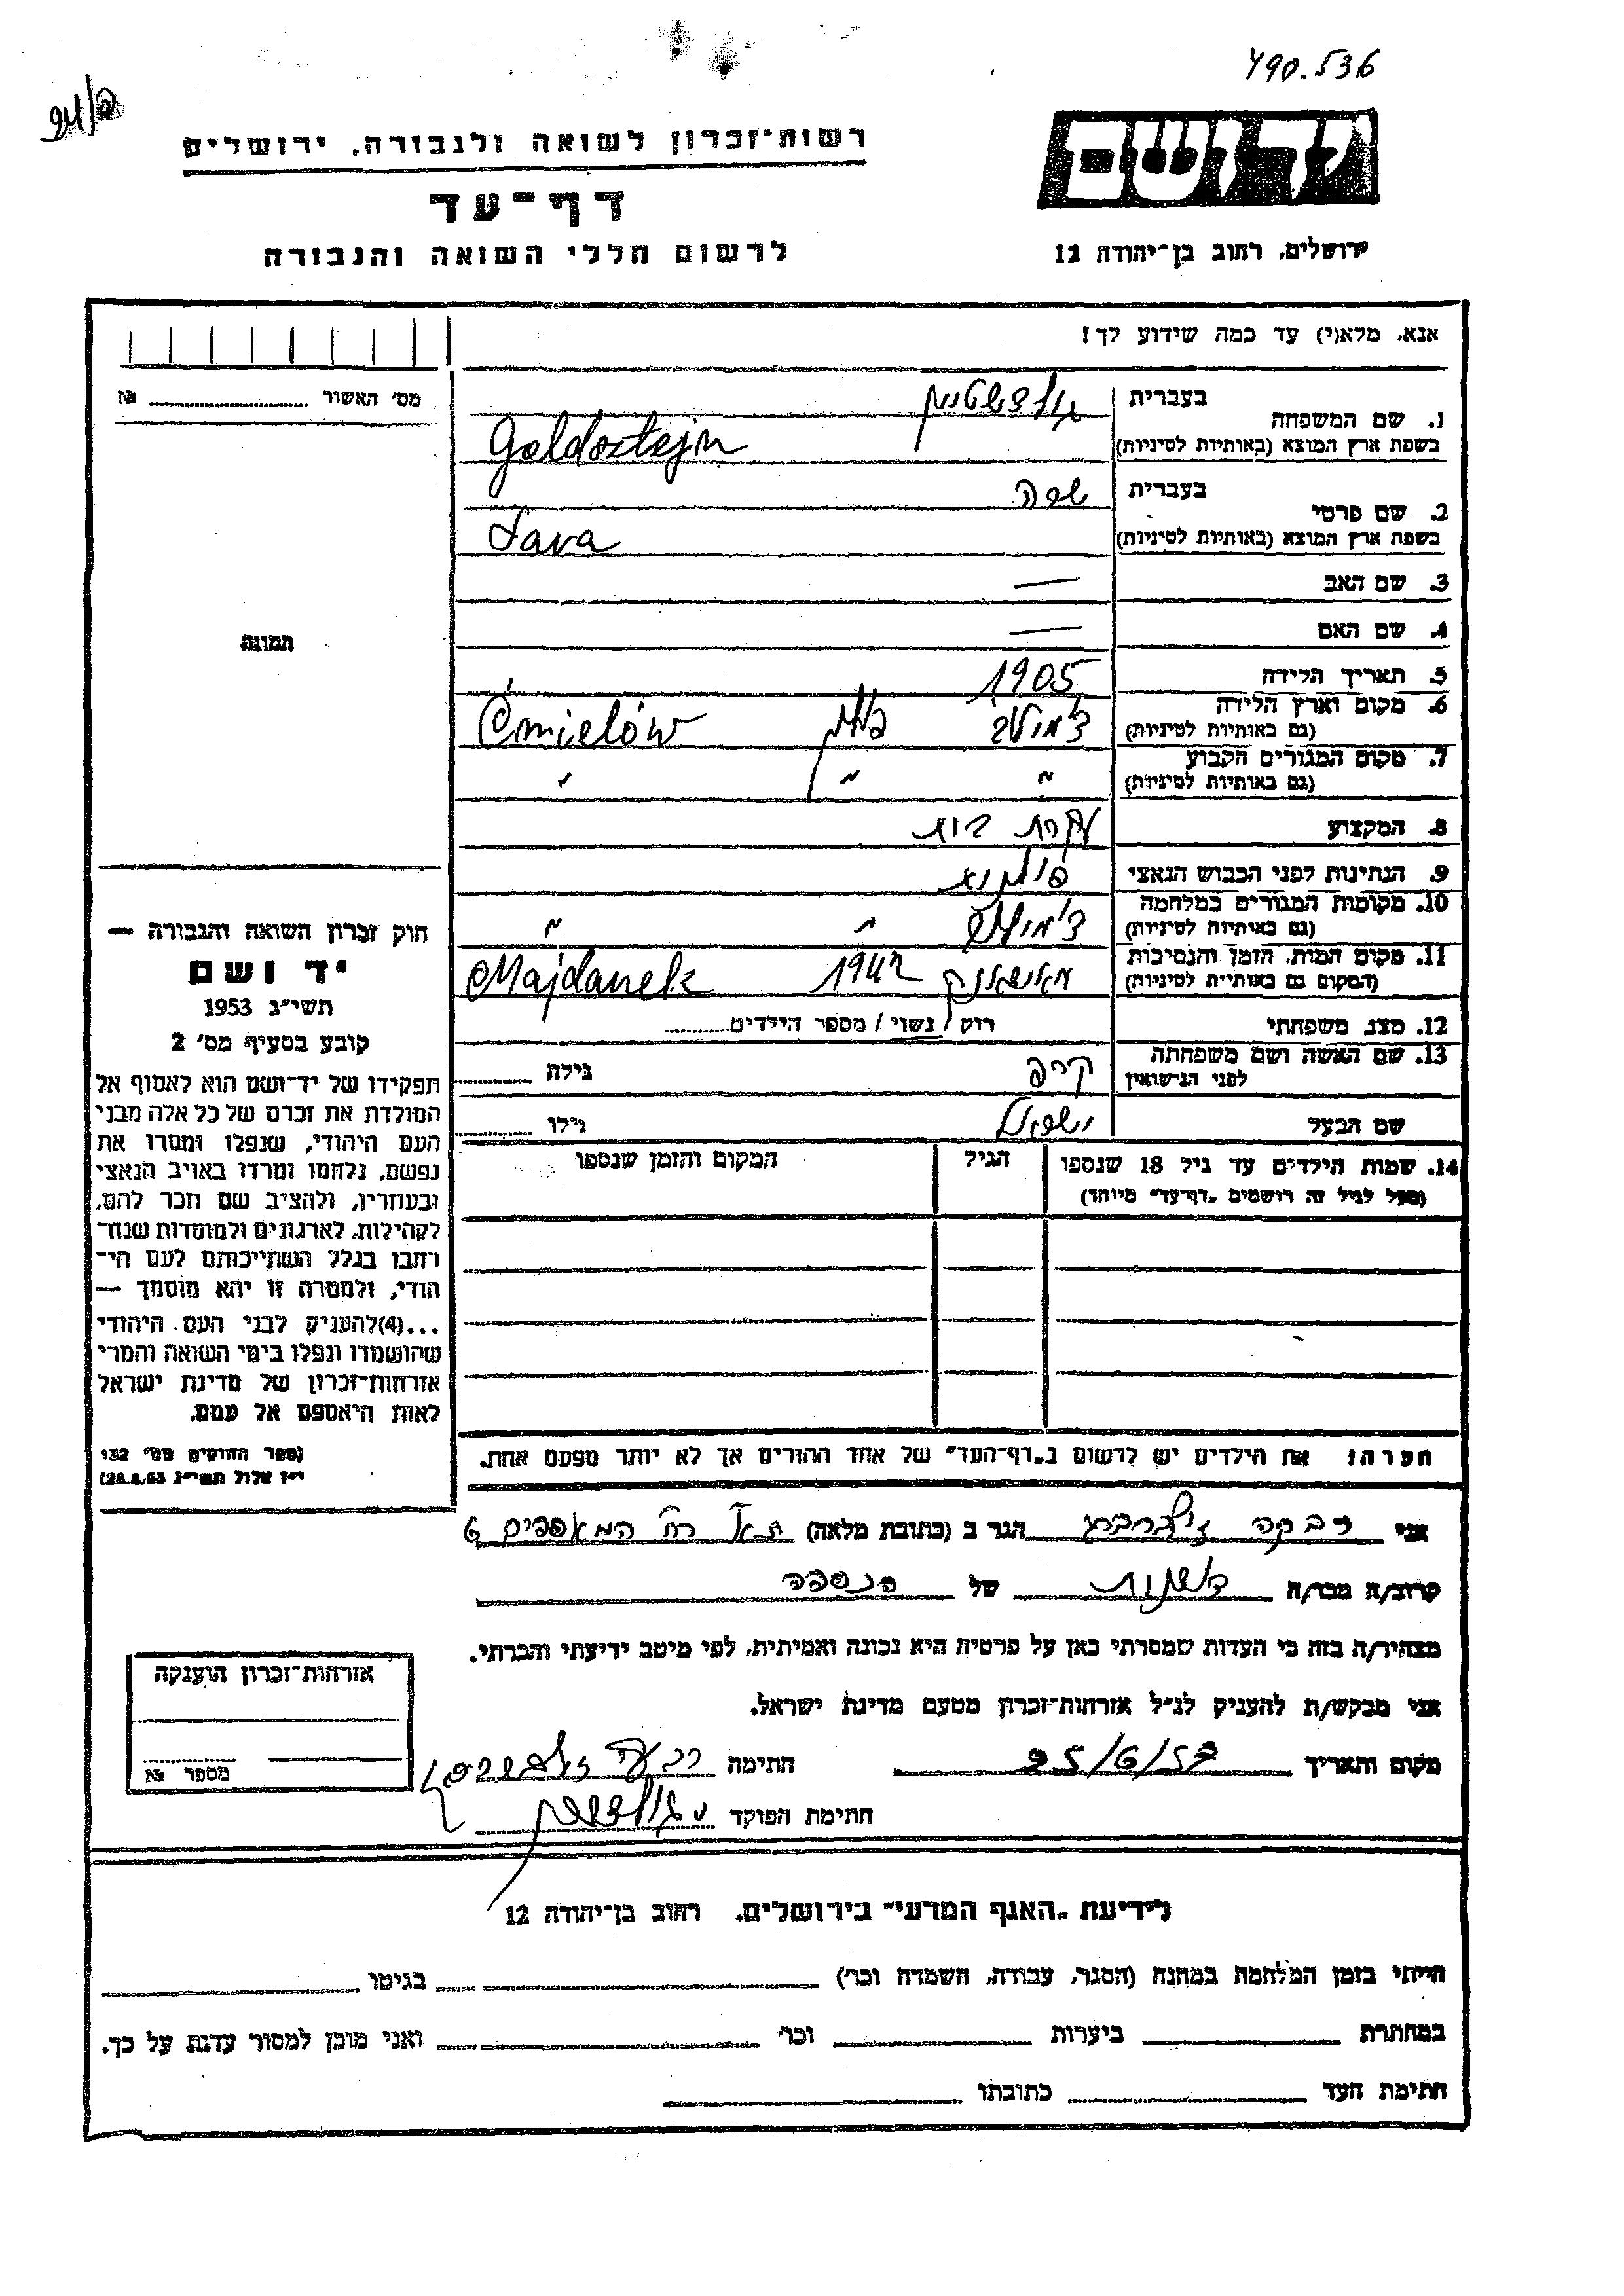 490.536
רשות־זכרון לשואה ולגבורה, ירושלים
יד ושם
דף־עד
לרשום חללי השואה והגבורה
ירושלים, רחוב בן־יהודה 12
אנא, מלא(י) עד כמה שידוע לך!
מס׳ האשור № ........
1. שם המשפחה
בעברית גולדשטיין
בשפת ארץ המוצא (באותיות לטיניות) Goldsztejn
2. שם פרטי
בעברית שרה
בשפת ארץ המוצא (באותיות לטיניות) Sara
3. שם האב —
4. שם האם —
תמונה
5. תאריך הלידה 1905
6. מקום וארץ הלידה (גם באותיות לטיניות) צ׳מילוב פולין Ćmielów
7. מקום המגורים הקבוע (גם באותיות לטיניות) " " "
8. המקצוע עקרת בית
9. הנתינות לפני הכבוש הנאצי פולניה
10. מקומות המגורים במלחמה (גם באותיות לטיניות) צ׳מילוב " "
11. מקום המות, הזמן והנסיבות (המקום גם באותיות לטיניות) מאידאנק 1942 Majdanek
12. מצב משפחתי רוק / נשוי / מספר הילדים........
13. שם האשה ושם משפחתה לפני הנישואין גילה ........
שם הבעל ישראל גילו ........
14. שמות הילדים עד גיל 18 שנספו הגיל המקום והזמן שנספו
(מעל לגיל זה רושמים „דף־עד״ מיוחד)
חוק זכרון השואה והגבורה —
יד ושם
תשי״ג 1953
קובע בסעיף מס׳ 2
תפקידו של יד־ושם הוא לאסוף אל
המולדת את זכרם של כל אלה מבני
העם היהודי, שנפלו ומסרו את
נפשם, נלחמו ומרדו באויב הנאצי
ובעוזריו, ולהציב שם וזכר להם,
לקהילות, לארגונים ולמוסדות שנח־
רבו בגלל השתייכותם לעם הי־
הודי, ולמטרה זו יהא מוסמך —
...(4)להעניק לבני העם היהודי
שהושמדו ונפלו בימי השואה והמרי
אזרחות־זכרון של מדינת ישראל
לאות היאספם אל עמם.
(ספר החוקים מס׳ 132
י״ז אלול תשי״ג 28.8.53)
הערה: את הילדים יש לרשום ב„דף־העד״ של אחד ההורים אך לא יותר מפעם אחת.
אני רבקה זילברברג הגר ב (כתובת מלאה) ת״א רח׳ המאספים 6
קרוב/ה מכר/ה של הנספה
מצהיר/ה בזה כי העדות שמסרתי כאן על פרטיה היא נכונה ואמיתית, לפי מיטב ידיעתי והכרתי.
אני מבקש/ת להעניק לנ״ל אזרחות־זכרון מטעם מדינת ישראל.
מקום ותאריך 25/6/57 חתימה רבקה זילברברג
חתימת הפוקד י גולדשטיין
אזרחות־זכרון הוענקה
מספר №
לידיעת „האגף המדעי״ בירושלים, רחוב בן־יהודה 12
הייתי בזמן המלחמה במחנה (הסגר, עבודה, השמדה וכו׳) בגיטו
במחתרת ביערות וכו׳ ואני מוכן למסור עדות על כך.
חתימת העד כתובתו